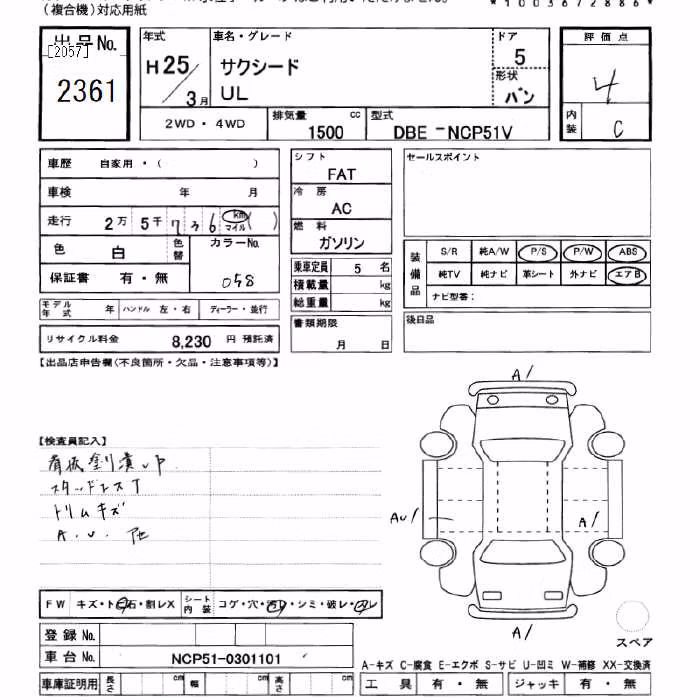 (複合機)対応用紙
*1003672886*
出品No.
[2057]
2361
年式
H25/3月
車名・グレード
サクシード
UL
ドア
5
形状
バン
評価点
4
内装
C
2WD・4WD
排気量 1500 cc
型式 DBE-NCP51V
車歴 自家用・( )
車検 年 月
走行 2万 5千 7 3 6 km マイル ( )
色 白 色替
カラーNo. 058
保証書 有・無
モデル年式 年 ハンドル 左・右 ディーラー・並行
リサイクル料金 8,230 円 預託済
シフト
FAT
冷房
AC
燃料
ガソリン
乗車定員 5 名
積載量 kg
総重量 kg
書類期限
月 日
セールスポイント
装備品
S/R 純A/W P/S P/W ABS
純TV 純ナビ 革シート 外ナビ エアB
ナビ型番:
後日品
【出品店申告欄(不良箇所・欠品・注意事項等)】
【検査員記入】
スタッドレスT
トリムキズ
A.U. 他
A/
AU/
A/
A/
スペア
FW キズ・ト石・割レX シート内装 コゲ・穴・汚レ・シミ・破レ・
登録No.
車台No. NCP51-0301101
車庫証明用 長さ cm 幅 cm 高さ cm
A-キズ C-腐食 E-エクボ S-サビ U-凹ミ W-補修 XX-交換済
工具 有・無 ジャッキ 有・無